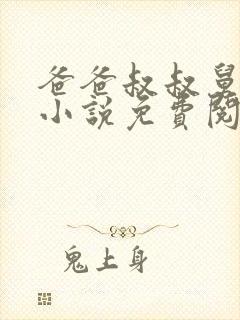 爸爸叔叔舅
小說免費閱
鬼上身